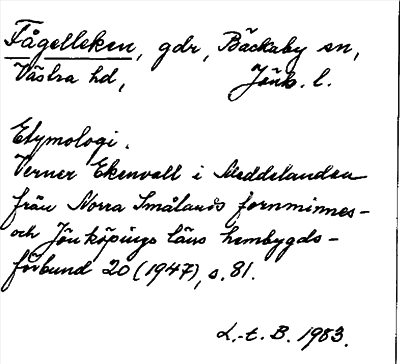 Fågelleken, gdr, Bäckaby sn,
Västra hd, Jönk. l.
Etymologi.
Verner Ekenvall i Meddelanden
från Norra Smålands fornminnes-
och Jönköpings läns hembygds-
förbund 20 (1947), s. 81.
L.-t. B. 1983.